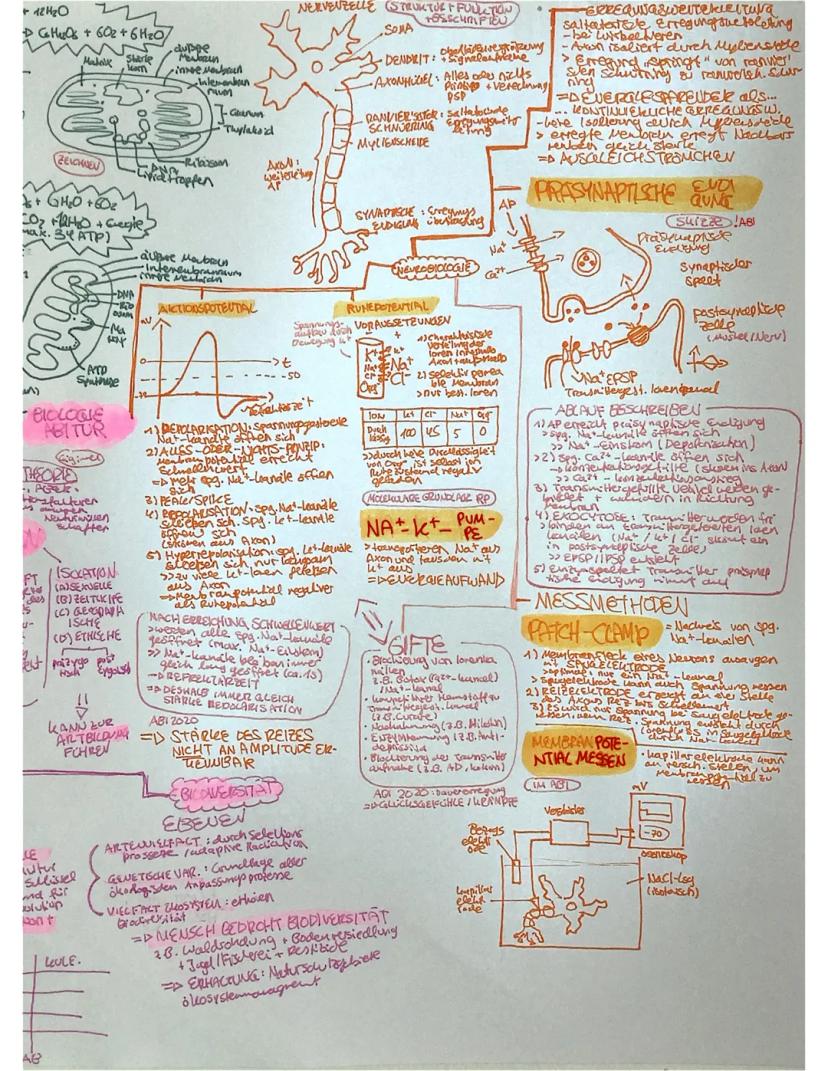 + 12H₂O
=> C₆H₁₂O₆ + 6O₂ + 6H₂O
äußere Membran
innere Membran
Matrix
Stärke
korn
Intermembran
raum
Granum
Thylakoid
Ribosom
DNA
Lipidtropfen
ZEICHNEN
+ 6H₂O + 6O₂
CO₂ + 12H₂O + Energie
(max. 34 ATP)
äußere Membran
Intermembranraum
innere Membran
DNA
Ribosom
Matrix
ATP
Synthase
BIOLOGIE
ABITUR
THEORIE
Naturwissen
schaften
ISOLATION
(A) SEXUELLE
(B) ZEITLICHE
(C) GEOGRAPH
ISCHE
(D) ETHISCHE
präzygo
tisch
post
zygotisch
KANN ZUR
ARTBILDUNG
FÜHREN
NERVENZELLE
STRUKTUR + FUNKTION
+ BESCHRIFTEN
SOMA
DENDRIT: Oberflächenvergrößerung
+ Signalaufnahme
AXONHÜGEL: Alles oder nichts
Prinzip + Verrechnung
PSP
RANVIER'SCHER
SCHNÜRRING: saltatorische
Erregungsweiter
leitung
MYLIENSCHEIDE
AXON:
Weiterleitung
AP
SYNAPTISCHE
ENDIGUNG: Erregungs
übertragung
NEUROBIOLOGIE
ERREGUNGSWEITERLEITUNG
saltatorische Erregungsweiterleitung
- bei Wirbeltieren
- Axon isoliert durch Myelinscheide
> Erregung "springt" von ranvier'
schen Schnürring zu ranvierisch. Schnür
ring
=> ENERGIESPARENDER als...
... KONTINUIERLICHE ERREGUNGSW.
- keine Isolierung durch Myelinscheide
> erregte Membran erregt Nachbars
membran gleich stark
=> AUSGLEICHSTRÖMCHEN
PRÄSYNAPTISCHE ENDI
GUNG
SKIZZE !ABI
AP
Na⁺
Ca²⁺
präsynaptische
Endigung
Synaptischer
Spalt
postsynaptische
Zelle
(Muskel/Nerv)
Na⁺ EPSP
Transmittergest. Ionenkanal
AKTIONSPOTENTIAL
mV
0
-50
t
Refraktärzeit
1) DEPOLARISATION: Spannungsgesteuerte
Na⁺-Kanäle öffnen sich
2) ALLES-ODER-NICHTS-PRINZIP:
Membranpotential erreicht
Schwellenwert
=> Mehr spg. Na⁺-Kanäle öffnen
sich
3) PEAK/SPIKE
4) REPOLARISATION: spg. Na⁺-Kanäle
schließen sich. spg. K⁺-Kanäle
öffnen sich
(strömen aus Axon)
5) Hyperpolarisation: spg. K⁺-Kanäle
schließen sich nur langsam
>> zu viele K⁺-Ionen fließen
aus Axon
=> Membranpotential negativer
als Ruhepotential
NACH ERREICHUNG SCHWELLENWERT
> werden alle spg. Na⁺-Kanäle
geöffnet (max. Na⁺-Einstrom)
>> Na⁺-Kanäle bleiben immer
gleich lang geöffnet (ca. 1s)
=> REFRAKTÄRZEIT
=> DESHALB IMMER GLEICH
STARKE DEPOLARISATION
ABI 2020
=> STÄRKE DES REIZES
NICHT AN AMPLITUDE ER-
KENNBAR
RUHEPOTENTIAL
Spannungs-
aufbau durch
Bewegung K⁺
VORAUSSETZUNGEN
- +
K⁺ K⁺
Na⁺ Na⁺
Cl⁻ Cl⁻
Org⁻
1) Charakteristische
Verteilung der
Ionen innerhalb
Axon + außerhalb
2) selektiv permea
ble Membran
> nur best. Ionen
ION K⁺ Cl⁻ Na⁺ Org⁻
Durch
lässig. 100 45 5 0
>> durch keine Durchlässigkeit
von Org⁻ ist selbst im
Ruhezustand negativ
geladen
MOLEKULARE GRUNDLAGE RP
NA⁺-K⁺-PUM-
PE
> transportieren Na⁺ aus
Axon und tauschen mit
K⁺ aus
=> ENERGIEAUFWAND
GIFTE
- Blockierung von Ionenka
nälen
z.B. Botox (Ca²⁺-Kanal)
/ Na⁺-Kanal
- kompetitive Hemmstoff zu
Transmittergest. Kanal
(z.B. Curare)
- Nachahmung (z.B. Nikotin)
- Enzymhemmung (z.B. Anti-
depressiva
- Blockierung der Transmitter
aufnahme (z.B. AD, Kokain)
ABI 2020: Dauererregung
=> GLÜCKSGEFÜHLE / KRÄMPFE
ABLAUF BESCHREIBEN
1) AP erreicht präsynaptische Endigung
> spg. Na⁺-Kanäle öffnen sich
>> Na⁺-Einstrom (Depolarisation)
2) spg. Ca²⁺-Kanäle öffnen sich
> Konzentrationsgefälle (strömen ins Axon)
>> Ca²⁺-Konzentrationsanstieg
3) Transmittergefüllt Vehikel werden ge-
bildet + wandern in Richtung
Membran
4) EXOCYTOSE: Transmitter werden frei
> binden an transmittergesteuerten Ionen
kanälen (Na⁺/K⁺/Cl⁻ strömt ein
in postsynaptische Zelle)
>> EPSP/IPSP entsteht
5) Enzym spaltet Transmitter, präsynap
tische Endigung nimmt auf
MESSMETHODEN
PATCH-CLAMP = Nachweis von spg.
Na⁺-Kanälen
1) Membranfleck eines Neurons ansaugen
mit SAUGELEKTRODE
> optimal: nur ein Na⁺-Kanal
> Saugelektrode kann auch Spannung messen
2) REIZELEKTRODE erzeugt an der Stelle
des Axons Reiz bis Schwellenwert
3) Es wird nur Spannung bei Saugelektrode ge-
messen. Spannung entsteht durch
Ionenfluss in Saugelektrode
durch Na⁺-Kanal
MEMBRANPOTE-
NTIAL MESSEN
- Kapillarelektrode kann
an versch. Stellen, um
Membranpotential zu
messen
IM ABI
mV
Verstärker
-70
Oszilloskop
Bezugs
elektr
ode
Kapillar
elekt
rode
NaCl-Lsg
(isotonisch)
BIODIVERSITÄT
EBENEN
ARTENVIELFALT: durch Selektions
prozesse / adaptive Radiation
GENETISCHE VAR.: Grundlage aller
ökologischen Anpassungsprozesse
VIELFALT ÖKOSYSTEM: erhöhen
Biodiversität
=> MENSCH BEDROHT BIODIVERSITÄT
z.B. Waldrodung + Bodenversiedlung
+ Jagd/Fischerei + Pestizide
=> ERHALTUNG: Naturschutzgebiete
ökosystemmanagement
KULT.